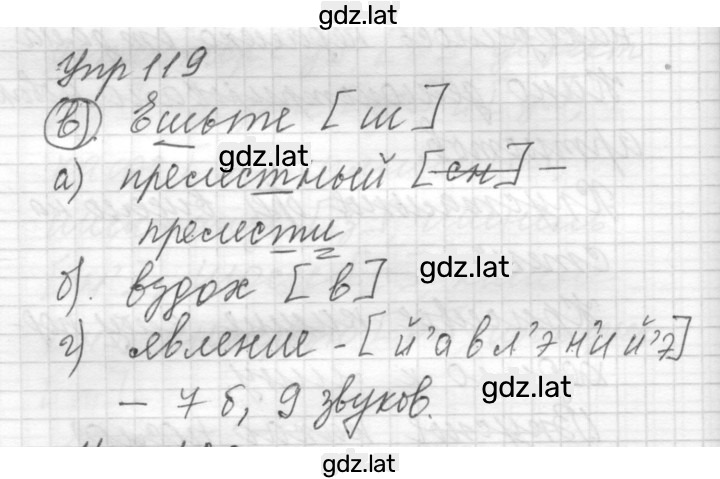 gdz.lat
Упр 119
в). Ешьте [ш]
gdz.lat
а) прелестный [сн] –
прелести
gdz.lat
б). вздох [в]
г) явление - [й'авл'эн'ий'э]
gdz.lat
– 7 б, 9 звуков.
gdz.lat